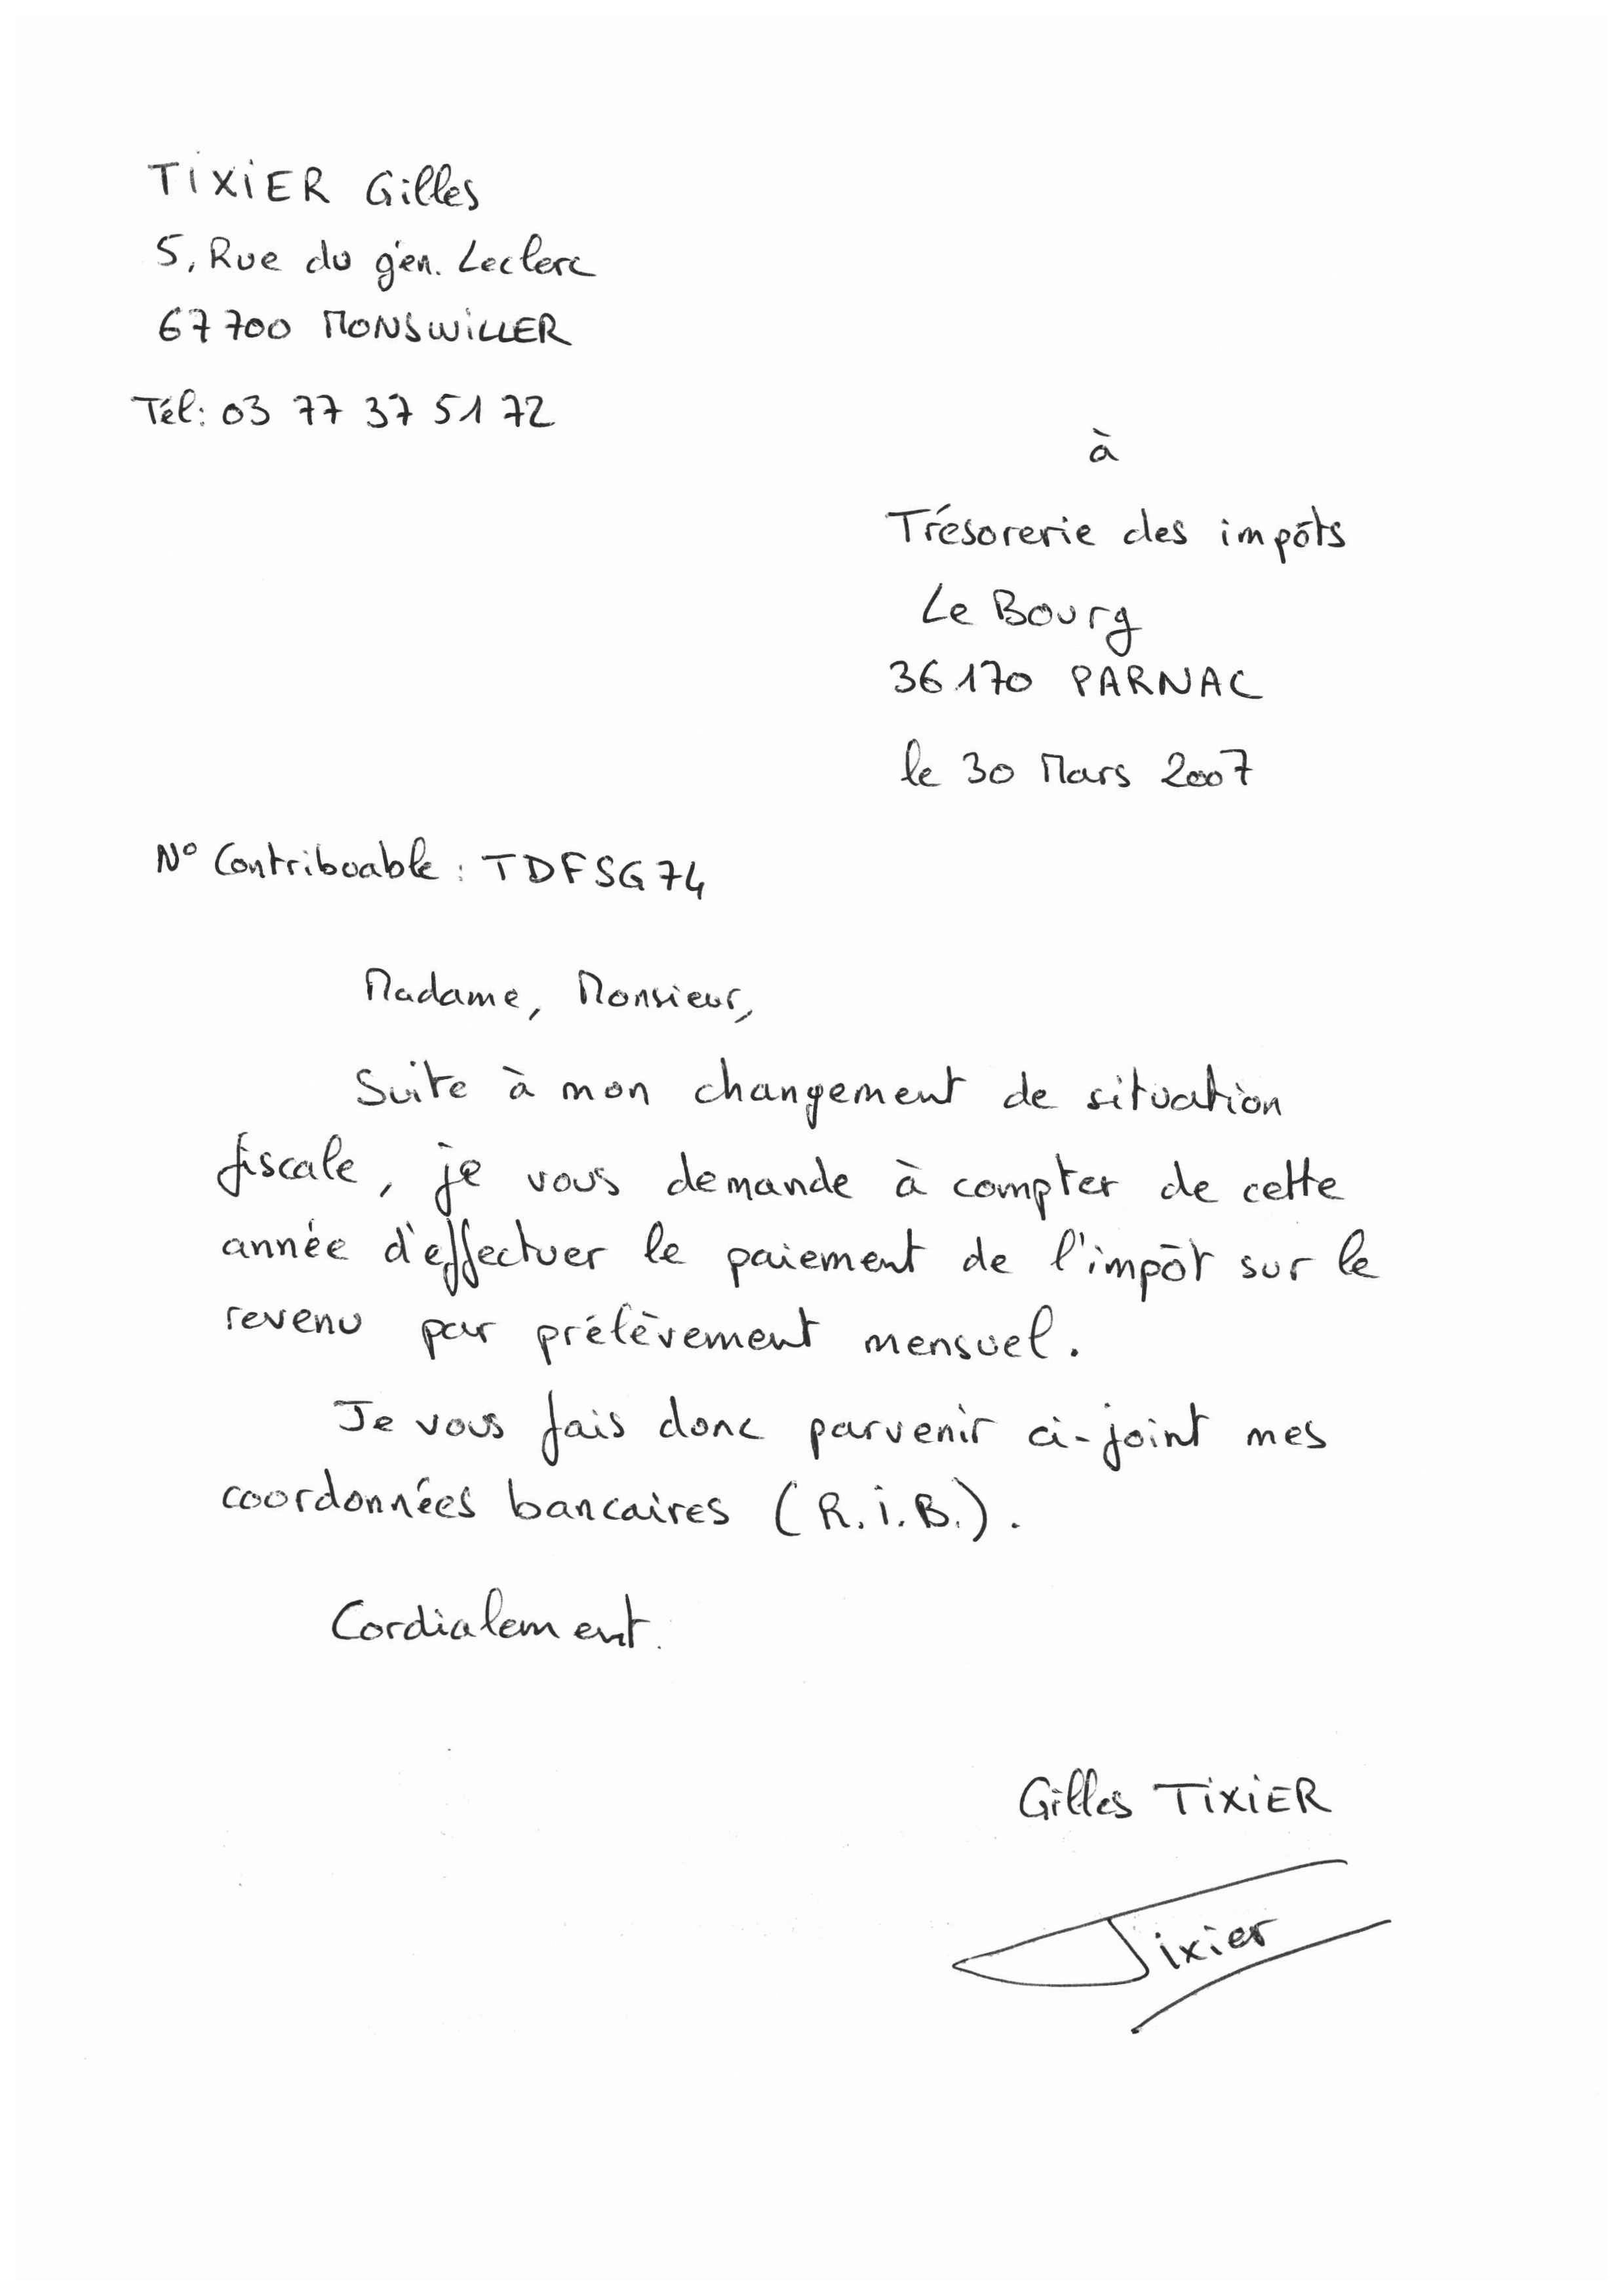 TIXIER Gilles
5, Rue du gén. Leclerc
67700 MONSWILLER
Tél: 03 77 37 51 72
à
Trésorerie des impôts
Le Bourg
36170 PARNAC
le 30 Mars 2007
N° Contribuable : TDFSG74
Madame, Monsieur,
Suite à mon changement de situation
fiscale, je vous demande à compter de cette
année d'effectuer le paiement de l'impôt sur le
revenu par prélèvement mensuel.
Je vous fais donc parvenir ci-joint mes
coordonnées bancaires (R.i.B.).
Cordialement.
Gilles TIXIER
Tixier